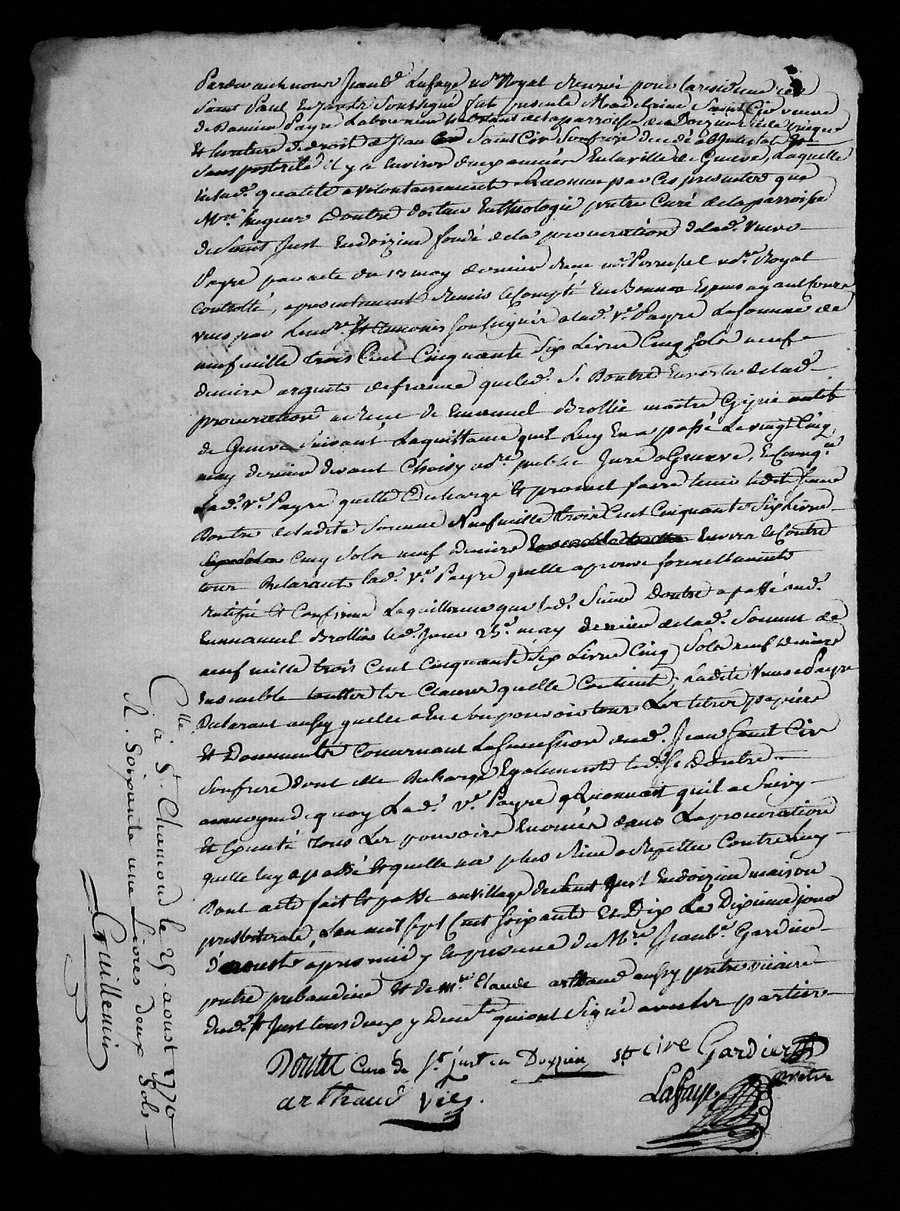 Pardevant nous Jean Bte Lafaye nore Royal Reservé pour la residence de
Saint Paul En Jarest Soussigné fut presente Magdelaine Saint Cir veuve
de Damien Payre Laboureur de la parroisse de Doizieu
et heritiere de droit de Jean Saint Cir Son frere decedé
sans posterité il y a environ Enlaville de Geneve, Laquelle
a volontairement Reconnu par ces presentes que
Mre Doutre docteur En theologie pretre Curé de la parroisse
de Saint Just En doizieu fondé de la procuration de lad. veuve
Payre par acte du 13 may dernier Receu me nore Royal
controllé, a presentement Remis et Compté En Bonnes Especes ayant Cours
veus par Led. nore et temoins soussignés a lad. ve Payre La somme de
neuf mille trois Cent Cinquante Six Livres Cinq Sols neuf
deniers argent de france que led. Sr Doutre En vertu de lad.
procuration a Receu de Emanuel Brollie maitre Gipié
de Geneve Suivant La quittance quil Luy En a passé Le vingt Cinq
may dernier devant Choisy nore public Juré a Geneve,
Lad. ve Payre quelle decharge et promet faire tenir led. Sieur
Doutre de ladite Somme Neuf mille trois Cent Cinquante Six livres
Cinq Sols neuf deniers Envers et Contre
tous Declarant lad. ve Payre quelle aprouve formellement
ratifie et Confirme La quittance que led. Sieur Doutre a passé aud.
Emmanuel Brollie led. Jour 25e may dernier de lad. Somme de
neuf mille trois Cent Cinquante Six Livres Cinq Sols neuf Deniers
Ensemble touttes les Clauses quelle Contient; Ladite veuve Payre
Declarant aussy quelle a En son pouvoir tous Les titres papiers
et Documents Concernant La Succession dud. Jean Saint Cir
Son frere dont elle Decharge Egalement led. Sr Doutre
au moyend quoy Lad. ve Payre Reconnait quil a Suivy
et Executé tous Les pouvoirs Enoncés dans La procuration
quelle luy a passé et quelle na plus Rien a Repeter Contre Luy
Dont acte fait et passé au village de Saint Just En doizieu maison
presbiterale, L'an mil Sept Cent Soixante Et Dix Le Dixieme Jour
d'aoust apres midy En presence de Mre Jean Bte Gardier
pretre prebandier et de mre Claude arthaud aussy pretre vicaire
dud. St Just tous deux y Demts qui ont Signé avec les parties
Doutre Curé de St just en Doyzieu st cire Gardier
pretre
arthaud Vic. Lafaye
Clle à St Chamond le 25 aoust 1770
R. Soixante une Livres deux Sols
Guillemin